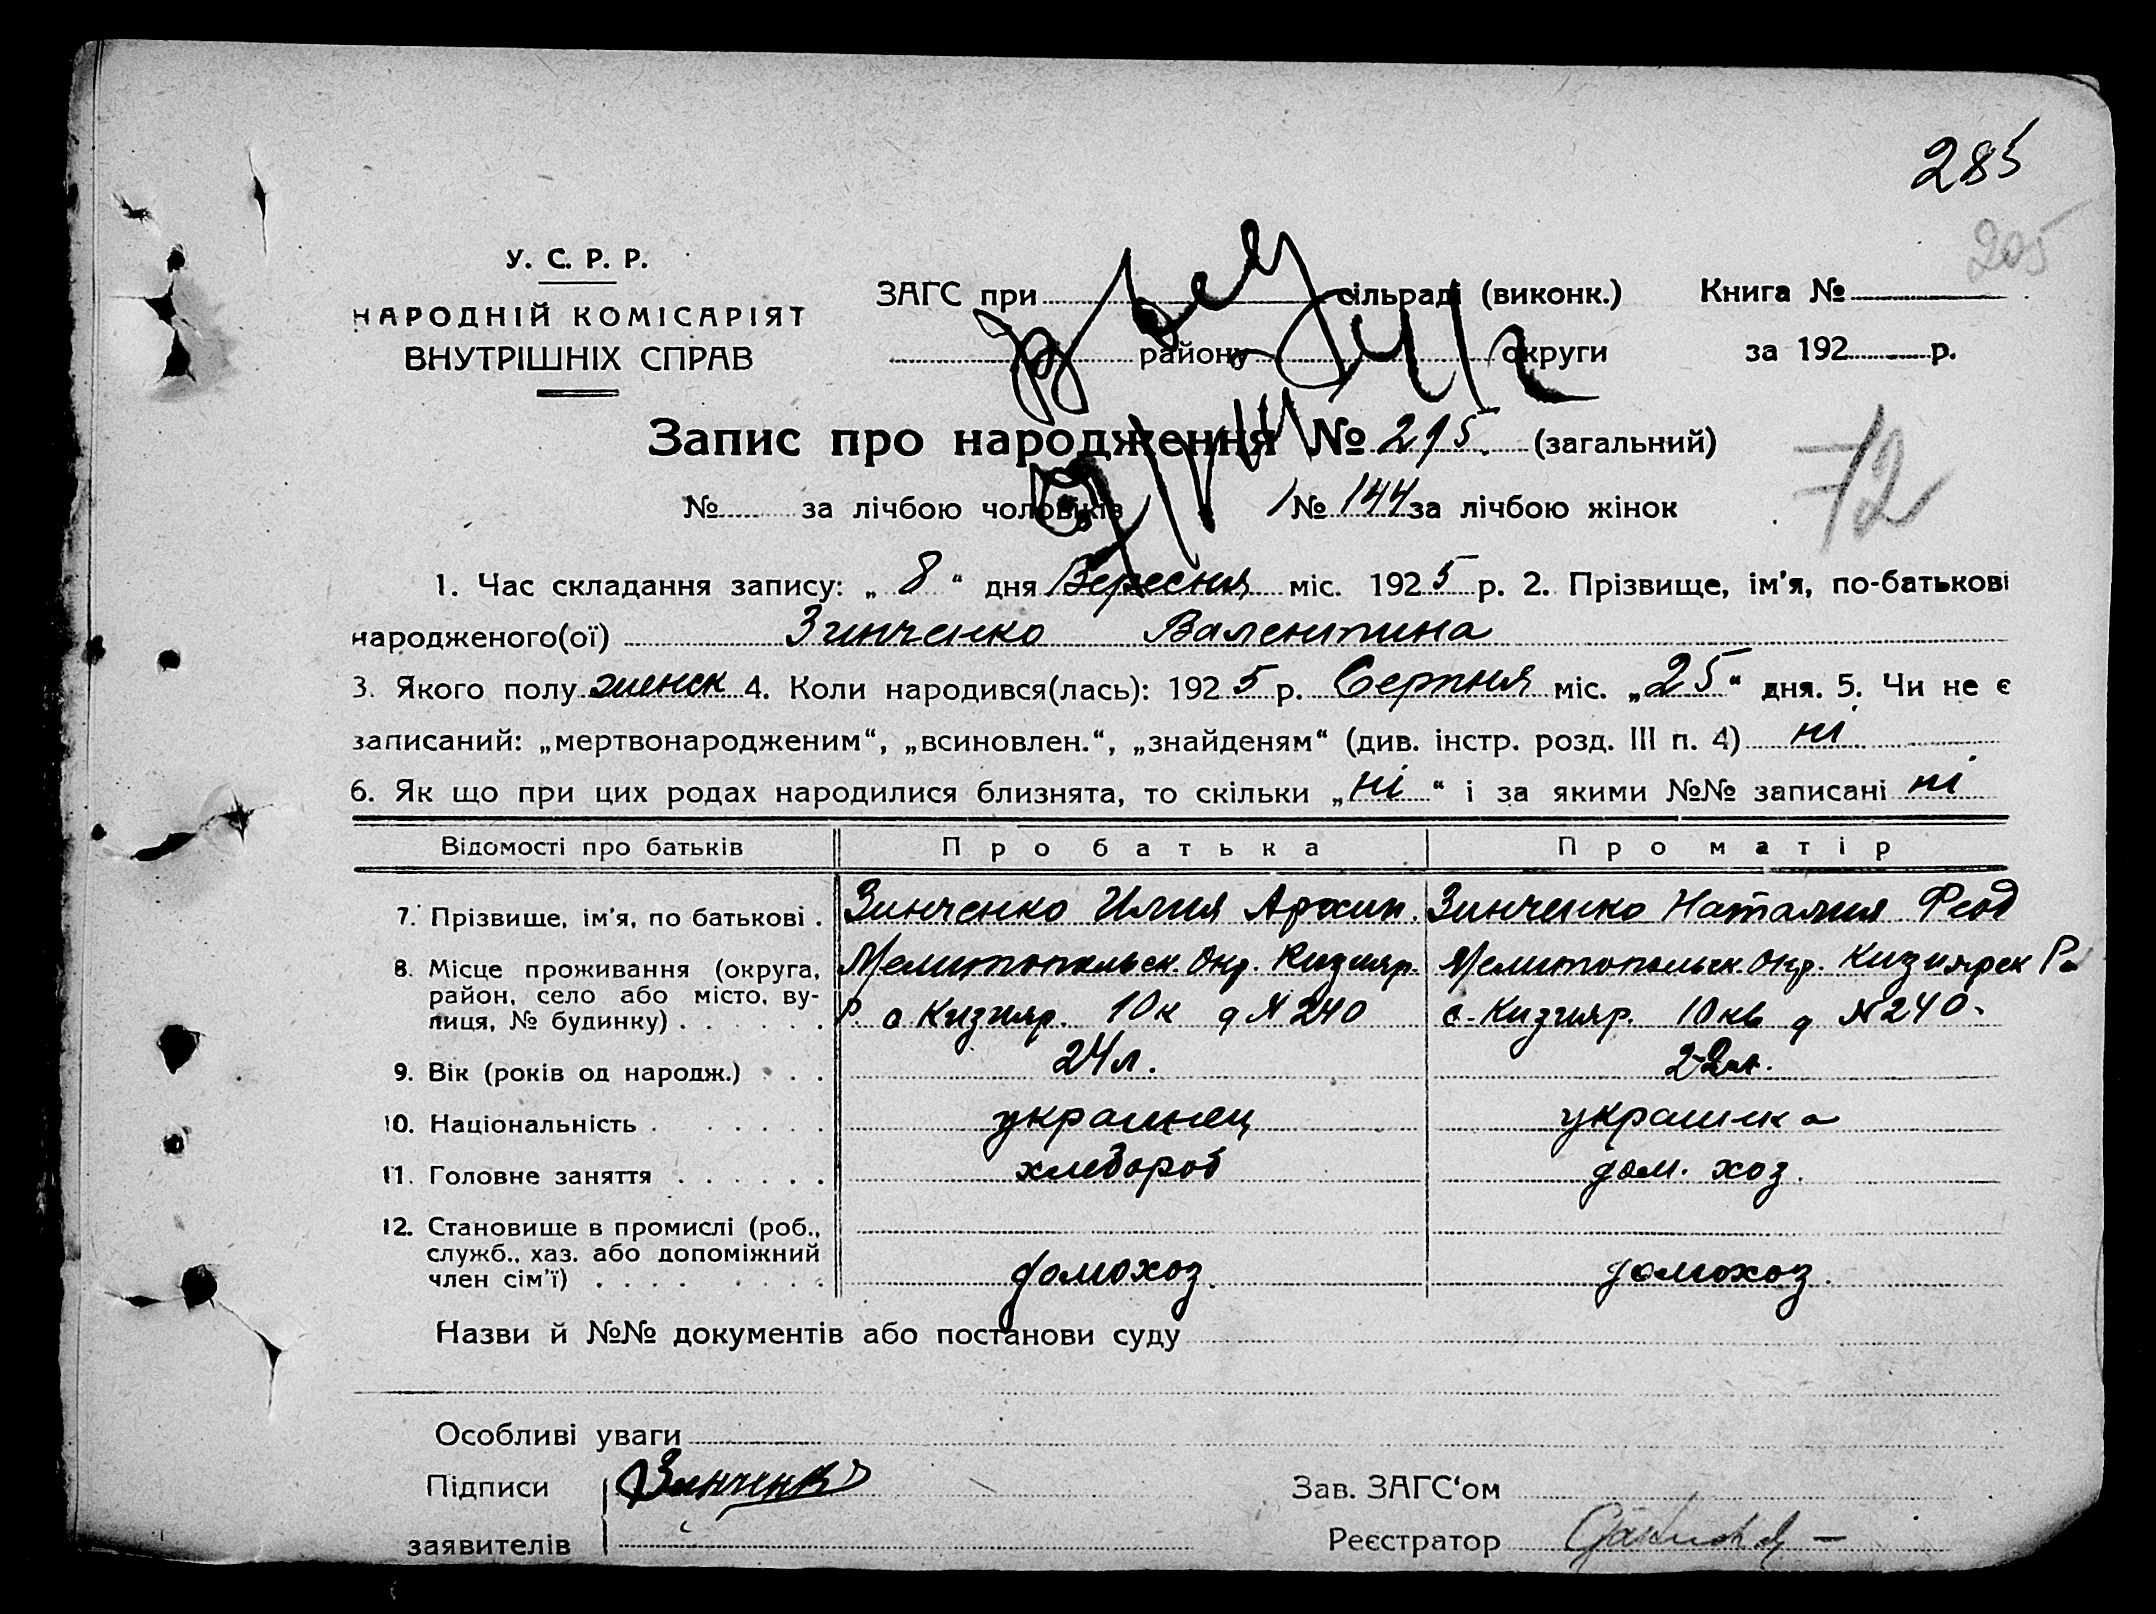 285
205
У. С. Р. Р.
НАРОДНІЙ КОМІСАРІЯТ
ВНУТРІШНІХ СПРАВ
ЗАГС при сільраді (виконк.) Книга №
району округи за 192 р.
Запис про народження № 215 (загальний)
72
№ за лічбою чоловіків № 144 за лічбою жінок
1. Час складання запису: „ 8 “ дня Вересня міс. 1925 р. 2. Прізвище, ім'я, по-батькові
народженого(ої) Зинченко Валентина
3. Якого полу женск 4. Коли народився(лась): 1925 р. Серпня міс. „25“ дня. 5. Чи не є
записаний: „мертвонародженим“, „всиновлен.“, „знайденям“ (див. інстр. розд. III п. 4) ні
6. Як що при цих родах народилися близнята, то скільки „ні“ і за якими №№ записані ні
Відомості про батьків Про батька Про матір
7. Прізвище, ім'я, по батькові . Зинченко Илия Архип. Зинченко Наталия Феод
8. Місце проживання (округа, район, село або місто, вулиця, № будинку) . . . . . . Мелитопольск. Окр. Кизияр. Мелитопольск. Окр. Кизиярск Р.
Р. с Кизияр. 10к д № 240 с. Кизияр. 10кв д № 240.
9. Вік (років од народж.) . . . 24л. 22л.
10. Національність . . . . . . украинец украинка
11. Головне заняття . . . . . . хлебороб дом. хоз.
12. Становище в промислі (роб., служб., хаз. або допоміжний член сім'ї) . . . . . . . . домохоз. домохоз.
Назви й №№ документів або постанови суду
Особливі уваги
Підписи Зинченко Зав. ЗАГС‘ом
заявителів Реєстратор